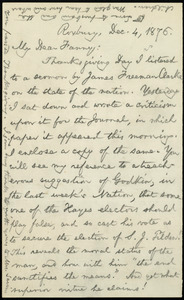 Roxbury, Dec. 4, 1876.
My Dear Fanny:
Thanksgiving Day I listened
to a sermon by James Freeman Clarke
on the state of the nation. Yesterday
I sat down and wrote a criticism
upon it for the Journal, in which
paper it appeared this morning.
I enclose a copy of the same. You
will see my reference to a treach-
erous suggestion of Godkin, in
the last week's Nation, that some
one of the Hayes electors should
play false, and so cast his vote as
to secure the election of S. J. Tilden.
This reveals the moral state of the
man, and how with him "the end
sanctifies the means." And yet what
superior virtue he claims!